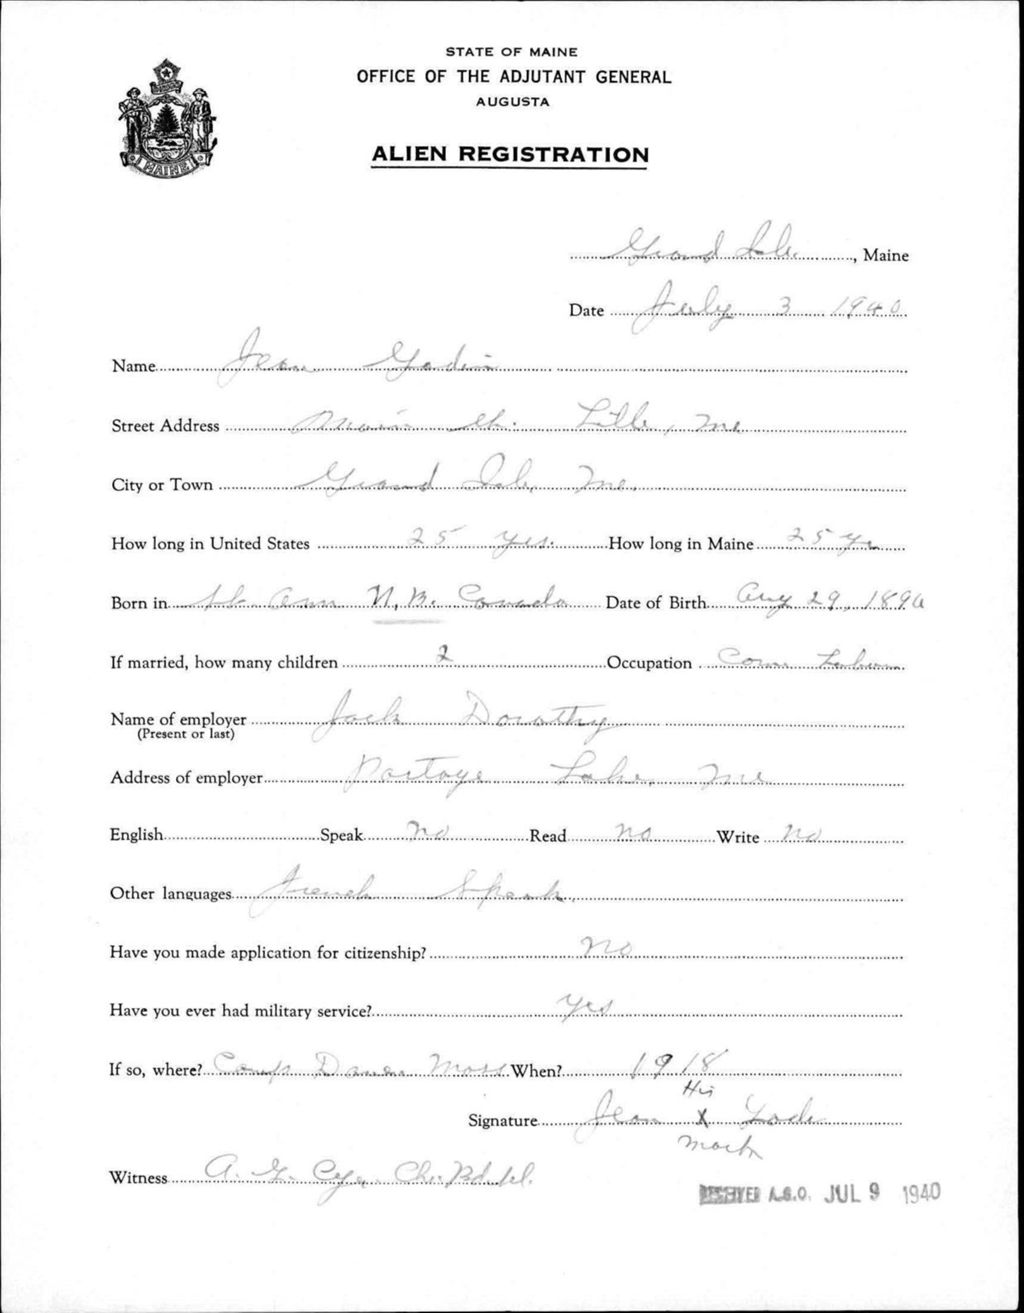 STATE OF MAINE
OFFICE OF THE ADJUTANT GENERAL
AUGUSTA
ALIEN REGISTRATION
MAINE
Grand Isle, Maine
Date July 3 1940
Name Jean Godin
Street Address Main St. Lille, Me
City or Town Grand Isle, Me.
How long in United States 25 yrs. How long in Maine 25 yr
Born in St. Ann N.B. Canada Date of Birth Aug 29, 1896
If married, how many children 2 Occupation Com Labor
Name of employer Jack Dorothy
(Present or last)
Address of employer Portage Lake, Me
English Speak No Read No Write No
Other languages French Speak.
Have you made application for citizenship? No
Have you ever had military service? Yes
If so, where? Camp Mass When? 1918
His
Signature Jean X
Mark
Witness A. Cyr
RECEIVED A.G.O. JUL 9 1940